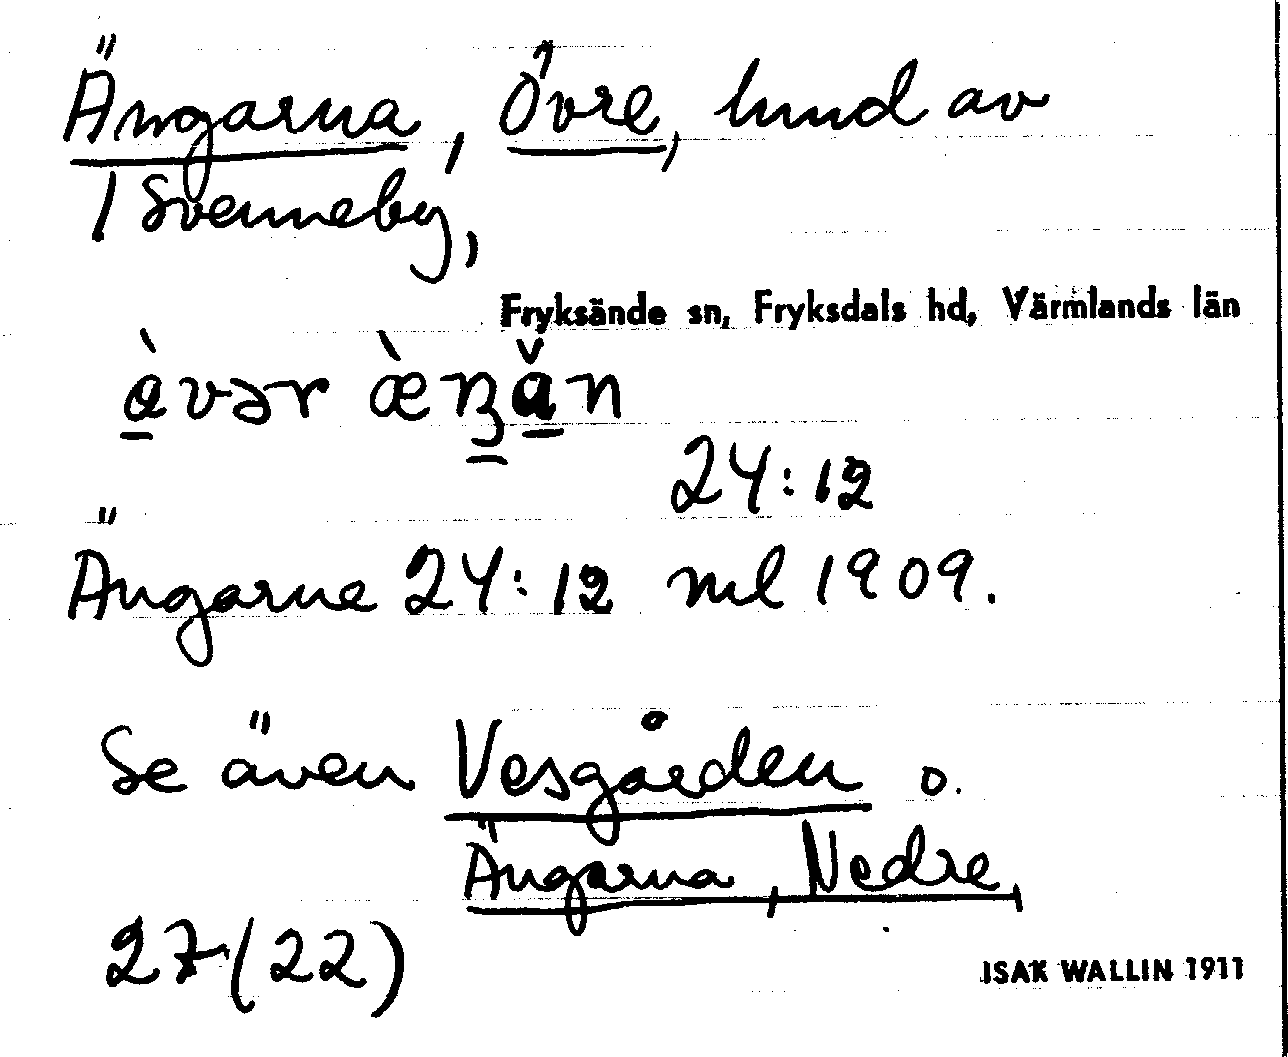 Ängarna, Övre, hmd av
1 Svenneby,
Fryksände sn, Fryksdals hd, Värmlands län
24:12
Ängarne 24:12 ml 1909.
Se även Vesgården o.
Ängarna, Nedre,
27 (22)
ISAK WALLIN 1911